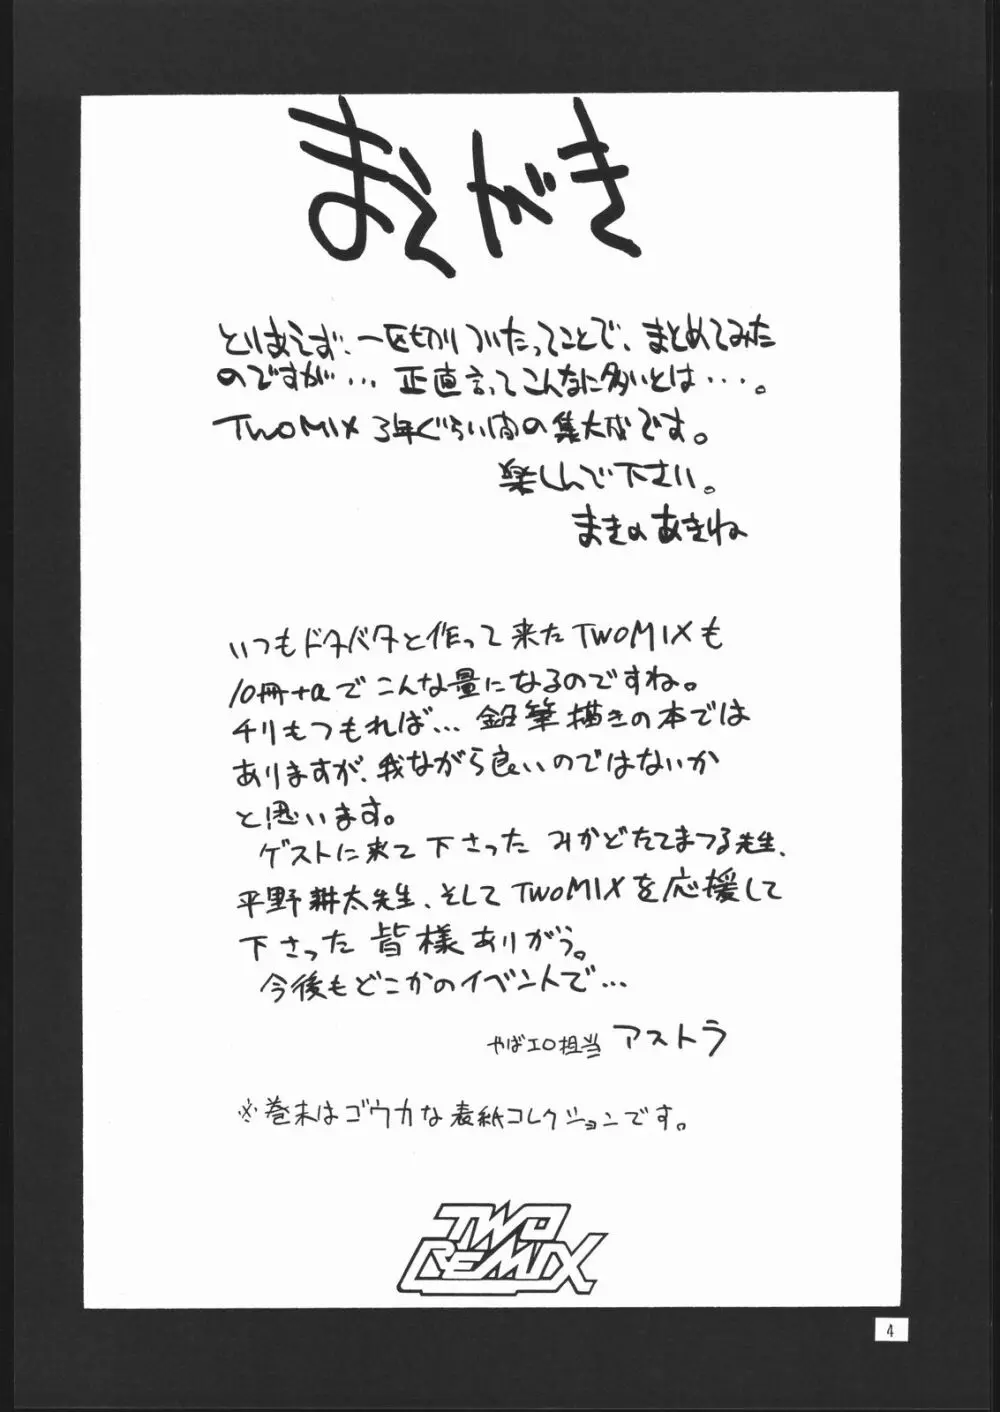 まえがき
とりあえず、一区切りついたってことで、まとめてみた
のですが… 正直言ってこんなに多いとは…。
TWOMIX 3年ぐらい間の集大成です。
楽しんで下さい。
まきのあきね
いつもドタバタと作って来たTWOMIXも
10冊+αでこんな量になるのですね。
チリもつもれば… 鉛筆描きの本では
ありますが、我ながら良いのではないか
と思います。
ゲストに来て下さった みかどたてまつる先生、
平野耕太先生、そしてTWOMIXを応援して
下さった 皆様ありがう。
今後もどこかのイベントで…
やばエロ担当 アストラ
※巻末はゴウカな表紙コレクションです。
TWO
REMIX
4